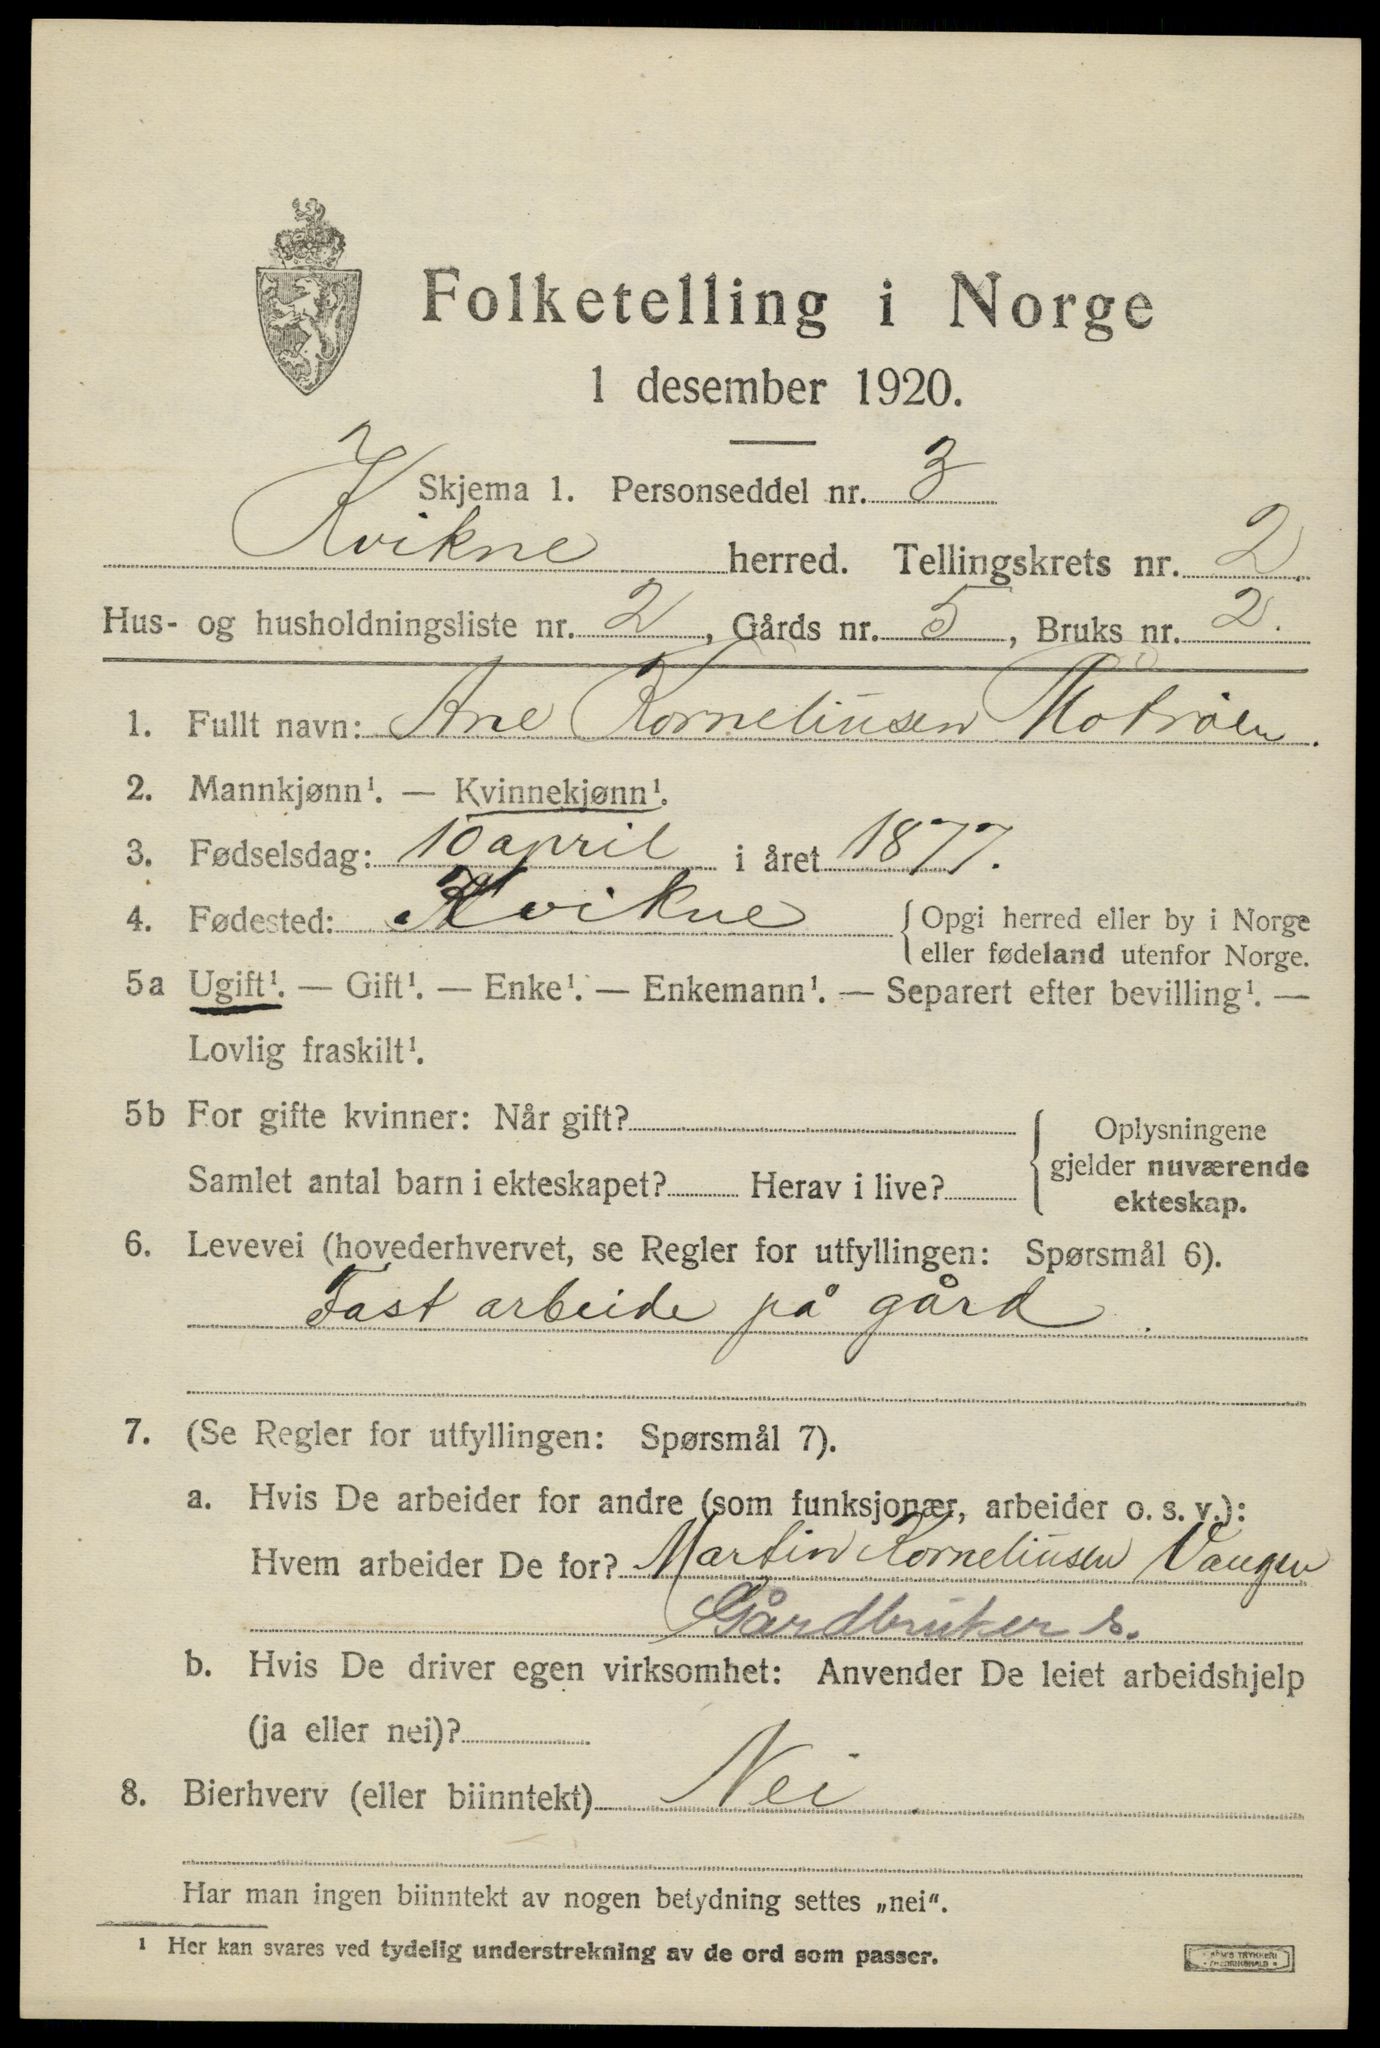 Folketelling i Norge
1 desember 1920.
Skjema 1. Personseddel nr. 3
Kvikne herred. Tellingskrets nr. 2.
Hus- og husholdningsliste nr. 2, Gårds nr. 5, Bruks nr. 2.
1. Fullt navn: Ane Korneliusen Motrøen.
2. Mannkjønn¹. — Kvinnekjønn¹.
3. Fødselsdag: 10 april i året 1877.
4. Fødested: Kvikne { Opgi herred eller by i Norge
eller fødeland utenfor Norge.
5a Ugift¹. — Gift¹. — Enke¹. — Enkemann¹. — Separert efter bevilling¹. —
Lovlig fraskilt¹.
5b For gifte kvinner: Når gift?
Samlet antal barn i ekteskapet? Herav i live?
Oplysningene
gjelder nuværende
ekteskap.
6. Levevei (hovederhvervet, se Regler for utfyllingen: Spørsmål 6).
Fast arbeide på gård.
7. (Se Regler for utfyllingen: Spørsmål 7).
a. Hvis De arbeider for andre (som funksjonær, arbeider o. s. v.):
Hvem arbeider De for? Martin Korneliusen Vangen
Gårdbruker s.
b. Hvis De driver egen virksomhet: Anvender De leiet arbeidshjelp
(ja eller nei)?
8. Bierhverv (eller biinntekt) Nei
Har man ingen biinntekt av nogen betydning settes „nei“.
¹ Her kan svares ved tydelig understrekning av de ord som passer.
TRYKKERI
FREDRIKSHALD